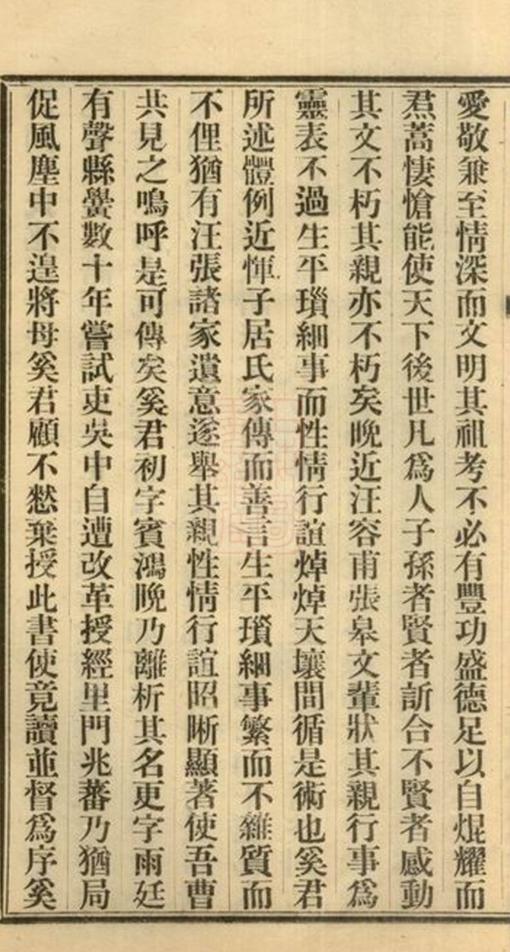 愛敬兼至情深而文明其祖考不必有豐功盛德足以自焜耀而
焄蒿悽愴能使天下後世凡爲人子孫者賢者訢合不賢者感動
其文不朽其親亦不朽矣晚近汪容甫張皋文輩狀其親行事爲
靈表不過生平瑣細事而性情行誼焯焯天壤間循是術也奚君
所述體例近惲子居氏家傳而善言生平瑣細事繁而不雜質而
不俚猶有汪張諸家遺意遂舉其親性情行誼昭晰顯著使吾曹
共見之嗚呼是可傳矣奚君初字賓鴻晚乃離析其名更字雨廷
有聲縣黌數十年嘗試吏吳中自遭改革授經里門兆蕃乃猶局
促風塵中不遑將母奚君顧不愁棄授此書使竟讀並督爲序奚